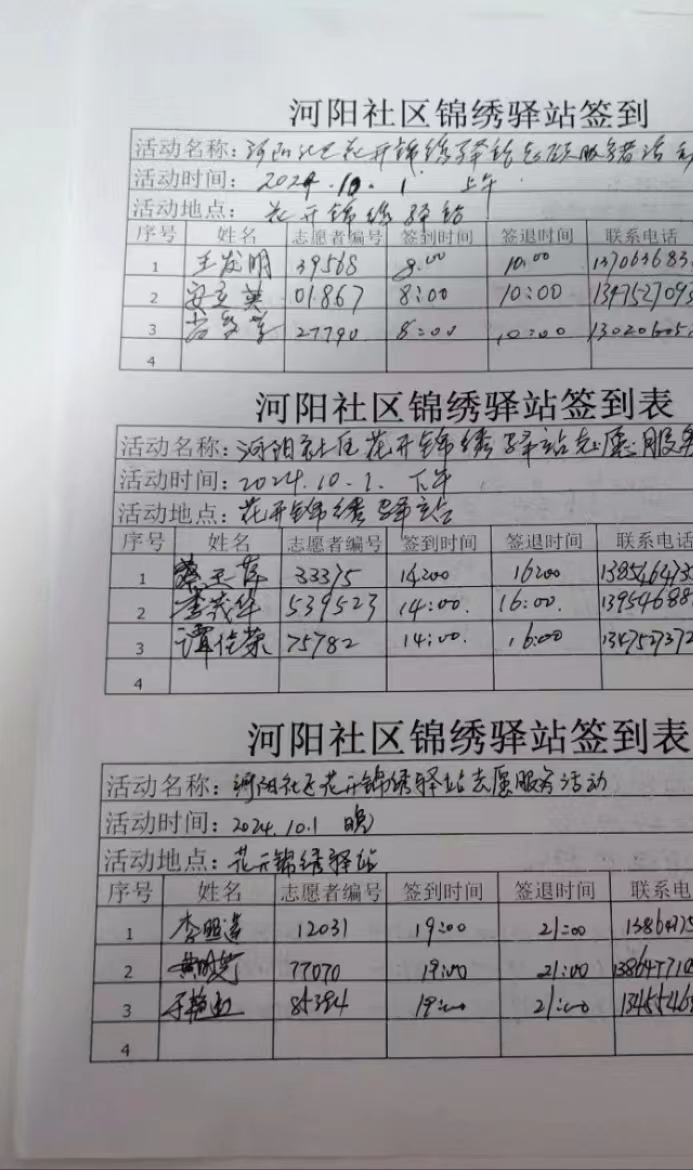 河阳社区锦绣驿站签到
活动名称：河阳社区花开锦绣驿站志愿服务者活动
活动时间：2024.10.1 上午
活动地点：花开锦绣驿站
序号 姓名 志愿者编号 签到时间 签退时间 联系电话
1 王发明 39568 8:00 10:00 137063683
2 安立英 01867 8:00 10:00 1347527093
3 27790 8:00 10:00 13020605
4
河阳社区锦绣驿站签到表
活动名称：河阳社区花开锦绣驿站志愿服务
活动时间：2024.10.1. 下午
活动地点：花开锦绣驿站
序号 姓名 志愿者编号 签到时间 签退时间 联系电话
1 33375 14:00 16:00 1385464735
2 李茂华 539523 14:00. 16:00. 13954688
3 谭佳荣 75782 14:00. 16:00 1347527372
4
河阳社区锦绣驿站签到表
活动名称：河阳社区花开锦绣驿站志愿服务活动
活动时间：2024.10.1 晚
活动地点：花开锦绣驿站
序号 姓名 志愿者编号 签到时间 签退时间 联系电
1 李照莲 12031 19:00 21:00 13864775
2 77070 19:00 21:00 138647710
3 于艳虹 85394 19:00 21:00 13455468
4